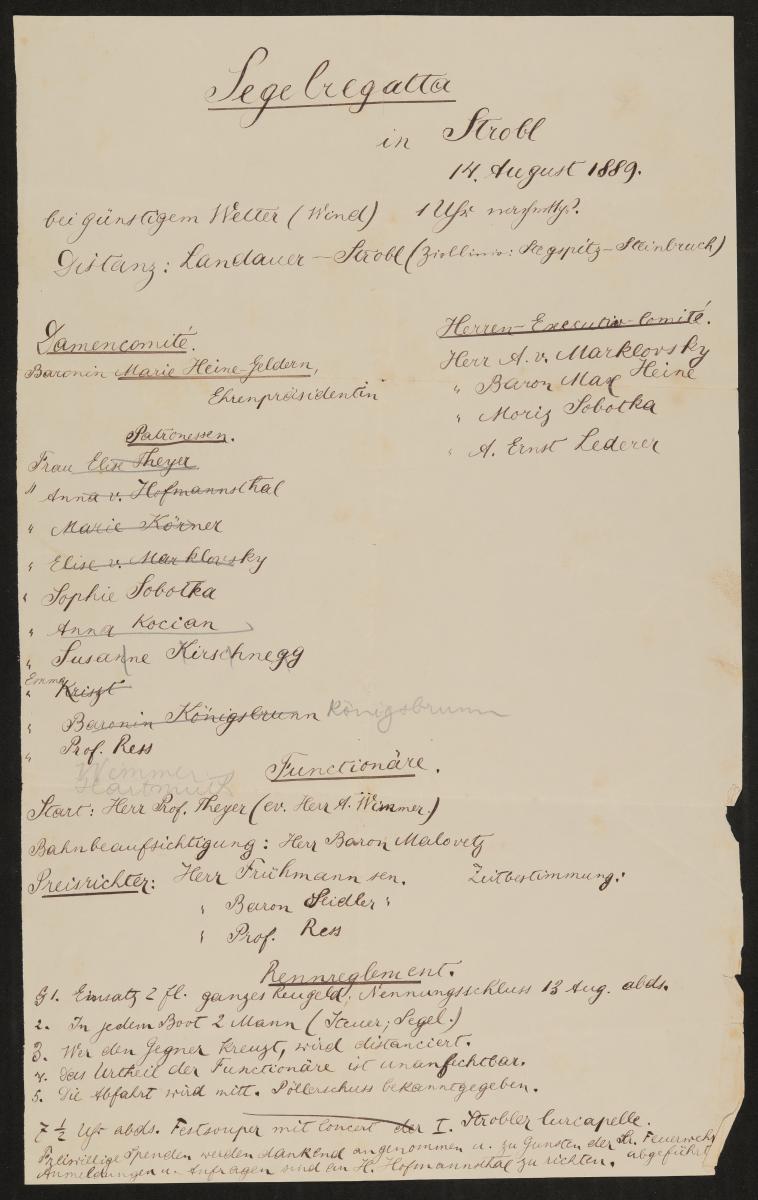 Segelregatta
in Strobl
14. August 1889.
bei günstigem Wetter (Wind) 1 Uhr nachmitt.
Distanz: Landauer – Strobl (Ziellinie: Stegspitz – Steinbruch)
Damencomité.
Baronin Marie Heine-Geldern,
Ehrenpräsidentin
Patronessen.
Frau Elise Theyer
" Anna v. Hofmannsthal
" Marie Körner
" Elise v. Marklovsky
" Sophie Sobotka
" Anna Kocian
" Susanne Kirschnegg
Emma
" Kriszt
" Baronin Königsbrunn Königsbrunn
" Prof. Ress
Wimmer
Hartmuth
Herren-Executiv-Comité.
Herr A. v. Marklovsky
" Baron Max Heine
" Moriz Sobotka
" A. Ernst Lederer
Functionäre.
Start: Herr Prof. Theyer (ev. Herr A. Wimmer.)
Bahnbeaufsichtigung: Herr Baron Malovetz
Preisrichter: Herr Frühmann sen. Zeitbestimmung:
" Baron Seidler "
" Prof. Ress
Rennreglement.
§ 1. Einsatz 2 fl. ganzes Reugeld, Nennungsschluss 13 Aug. abds.
2. In jedem Boot 2 Mann (Steuer, Segel.)
3. Wer den Gegner kreuzt, wird distanciert.
4. Das Urtheil der Functionäre ist unanfechtbar.
5. Die Abfahrt wird mitt. Pöllerschuss bekanntgegeben.
7 ½ Uhr abds. Festsouper mit Concert der I. Strobler Curcapelle.
Freiwillige Spenden werden dankend angenommen u. zu Gunsten der Feuerwehr abgeführt
Anmeldungen u. Anfragen sind an H. Hofmannsthal zu richten.